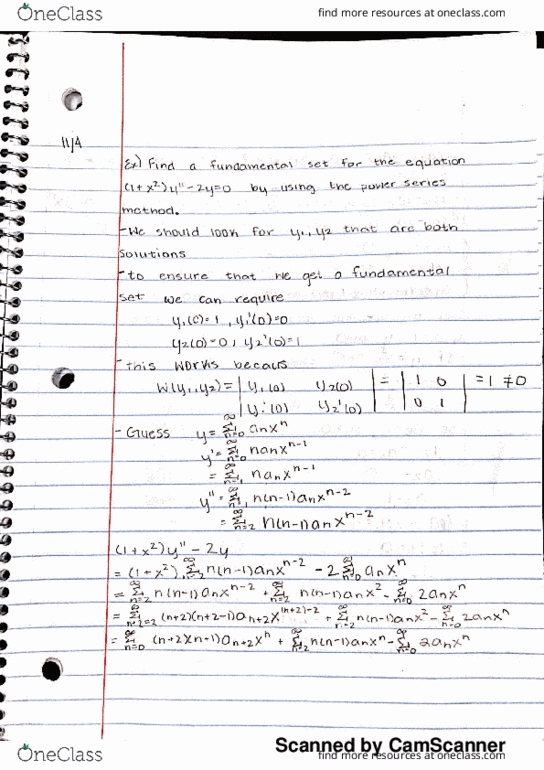 OneClass
find more resources at oneclass.com
11/4
Ex) Find a fundamental set for the equation
(1+x²)y"-2y=0 by using the power series
method.
-We should look for y₁,y₂ that are both
solutions
-to ensure that we get a fundamental
set we can require
y₁(0)=1, y₁'(0)=0
y₂(0)=0, y₂'(0)=1
-this works becaus
W(y₁,y₂)= | y₁(0) y₂(0) | = | 1 0 | =1 ≠0
| y₁'(0) y₂'(0) | | 0 1 |
- Guess y= ∞Σn=0 anxⁿ
y'= ∞Σn=0 nanxⁿ⁻¹
= ∞Σn=1 nanxⁿ⁻¹
y"= ∞Σn=1 n(n-1)anxⁿ⁻²
= ∞Σn=2 n(n-1)anxⁿ⁻²
(1+x²)y" - 2y
= (1+x²) ∞Σn=2 n(n-1)anxⁿ⁻² - 2 ∞Σn=0 anxⁿ
= ∞Σn=2 n(n-1)anxⁿ⁻² + ∞Σn=2 n(n-1)anx² - ∞Σn=0 2anxⁿ
= ∞Σn+2=2 (n+2)(n+2-1)an+2x⁽ⁿ⁺²⁾⁻² + ∞Σn=2 n(n-1)anx² - ∞Σn=0 2anxⁿ
= ∞Σn=0 (n+2)(n+1)an+2xⁿ + ∞Σn=2 n(n-1)anxⁿ - ∞Σn=0 2anxⁿ
Scanned by CamScanner
OneClass
find more resources at oneclass.com